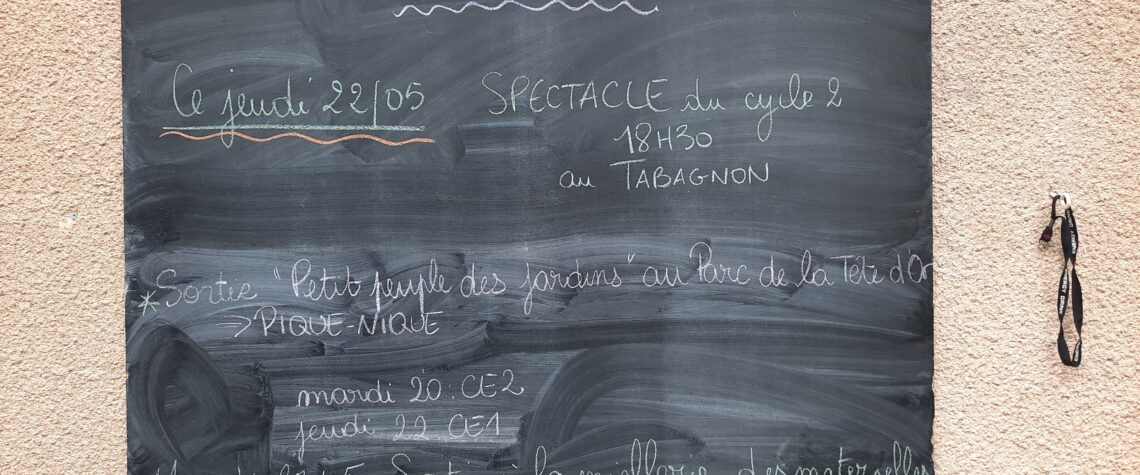 Ce jeudi 22/05 SPECTACLE du cycle 2
18H30
au TABAGNON
* Sortie "Petit peuple des jardins" au Parc de la Tête d'Or
⇒ PIQUE-NIQUE
mardi 20 : CE2
jeudi 22 CE1
des maternelles